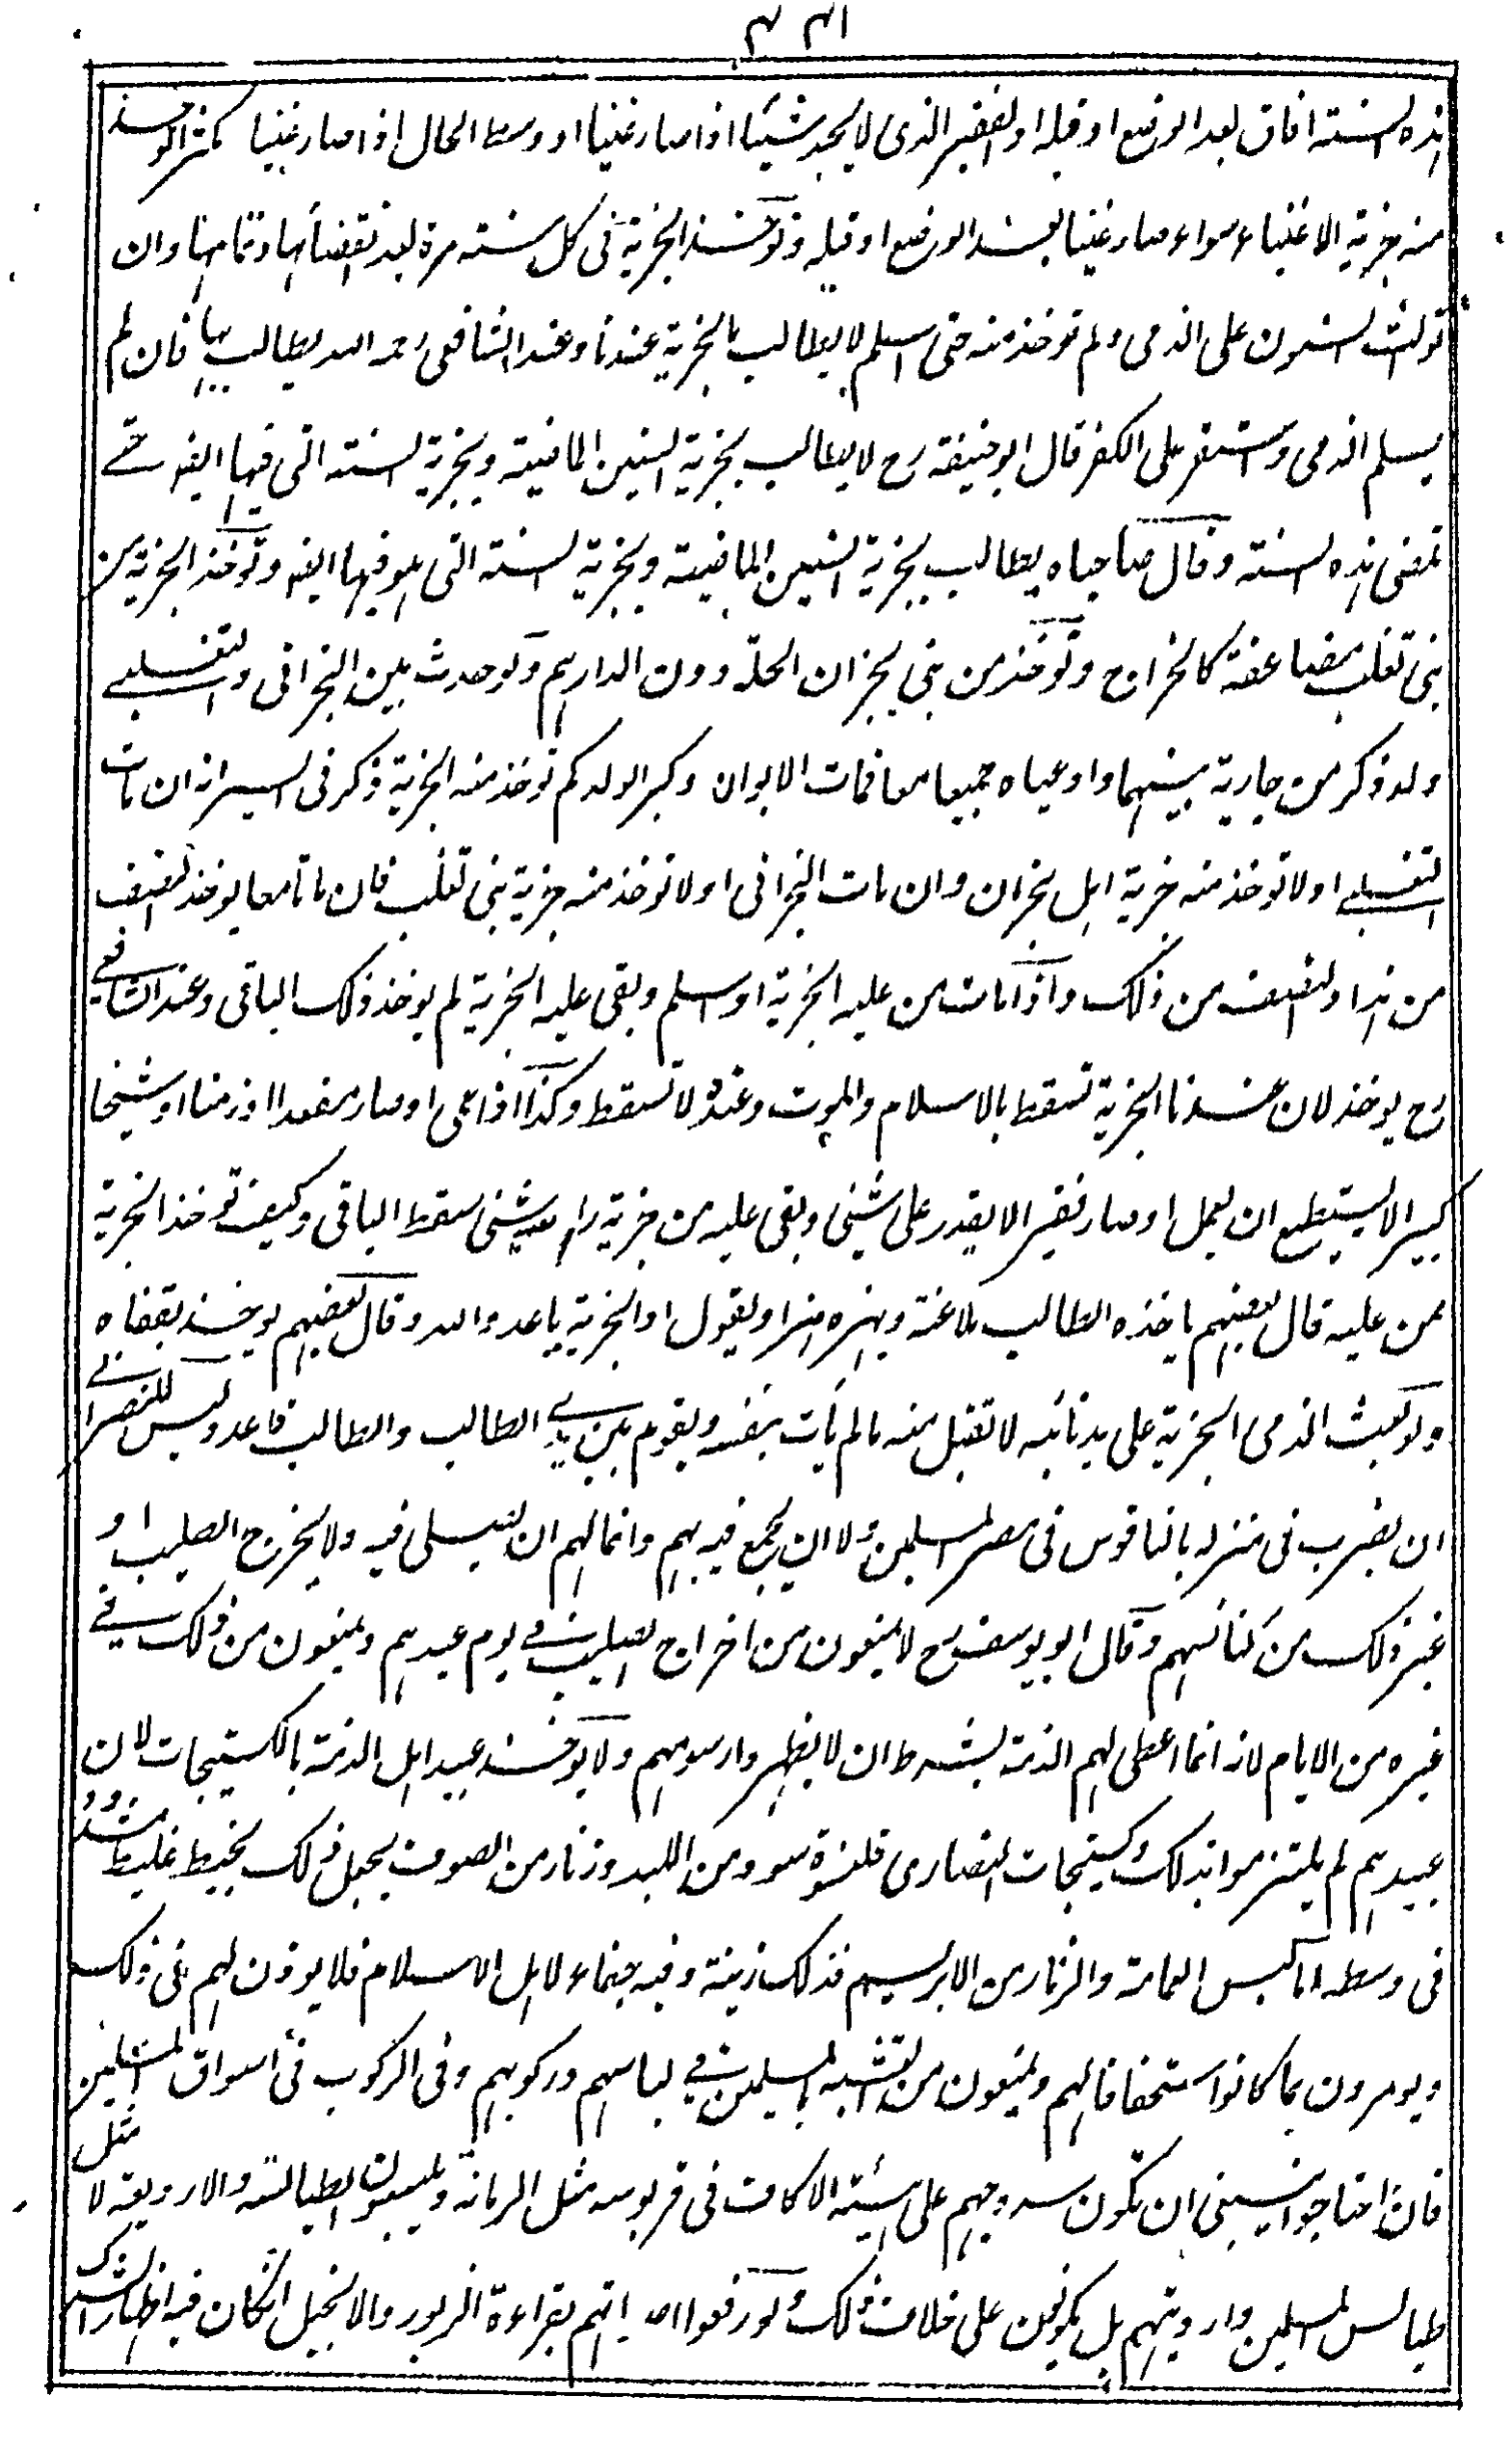 هذه السنة افاق بعد الوضع او قبله او الفقير الذى لا يجد شيئا اذا صار غنيا او وسط الحال اذا صار غنيا كثر يوخذ
منه جزية الاغنياء سواء صار غنيا بعد الوضع او قبله وتوخذ الجزية فى كل سنة مرة بعد انقضائها وتمامها وان
توالت السنون على الذمى ولم توخذ منه حتى اسلم لا يطالب بالجزية عندنا وعند الشافعى رحمه الله يطالب بها فان لم
يسلم الذمى واستقر على الكفر قال ابو حنيفة رح لا يطالب بجزية السنين الماضية وبجزية السنة التى فيها ايضا حتى
تمضى هذه السنة وقال صاحباه يطالب بجزية السنين الماضية وبجزية السنة التى هو فيها ايضا وتوخذ الجزية من
بنى تغلب مضاعفة كالخراج وتوخذ من بنى نجران الحلة دون الدراهم ولو حدث بين النجرانى والتغلبى
ولد ذكر من جارية بينهما وادعياه جميعا معا فمات الابوان وكبر الولد كم توخذ منه الجزية ذكر فى السير انه ان مات
التغلبى اولا توخذ منه جزية اهل نجران وان مات النجرانى اولا توخذ منه جزية بنى تغلب فان ماتا معا يوخذ النصف
من هذا والنصف من ذلك واذا مات من عليه الجزية او اسلم وبقى عليه الجزية لم يوخذ ذلك الباقى وعند الشافعى
رح يوخذ لان عندنا الجزية تسقط بالاسلام والموت وعنده لا تسقط وكذا اذا عمى او صار مقعدا او زمنا او شيخا
كبيرا لا يستطيع ان يعمل او صار فقيرا لا يقدر على شئى وبقى عليه من جزية راسه شئى سقط الباقى وكيف توخذ الجزية
ممن عليه قال بعضهم ياخذه الطالب بلا عنة ويهزه هزا ويقول اد الجزية يا عدو الله وقال بعضهم يوخذ بقفاه
ولو بعث الذمى الجزية على يد نائبه لا تقبل منه ما لم يات بنفسه ويقوم بين يدى الطالب والطالب قاعد وليس للنصرانى
ان يضرب فى منزله بالناقوس فى مصر المسلمين ولا ان يجمع فيه بهم وانما لهم ان يصلى فيه ولا يخرج الصليب او
غير ذلك من كنائسهم وقال ابو يوسف رح لا يمنعون من اخراج الصليب فى يوم عيدهم ويمنعون من ذلك فى
غيره من الايام لانه انما اعطى لهم الذمة بشرط ان لا يظهروا رسومهم ولا يوخذ عبيد اهل الذمة بالكستيجات لان
عبيدهم لم يلتزموا بذلك وكستيجات النصارى قلنسوة سود من اللبد وزنار من الصوف يجعل ذلك بخيط غليظ مشدود
فى وسطه اما لبس العمامة والزنار من الابريسم فذلك زينة وفيه جفاء لاهل الاسلام فلا يوذن لهم فى ذلك
ويومرون بما كان استخفافا لهم ويمنعون من التشبه بالمسلمين فى لباسهم وركوبهم وفى الركوب فى اسواق المسلمين
فان احتاجوا ينبغى ان تكون سروجهم على هيئة الاكاف فى قربوسه مثل الرمانة ويلبسون الطيالسة والاردية لا مثل
طيالس المسلمين وارديتهم بل يكون على خلاف ذلك ولو رفعوا اصواتهم بقراءة الزبور والانجيل انكان فيه اظهار الشرك